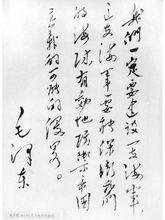 我們一定要建設一支海軍，
这支海军要能保障我們
的海防，有効地防御帝国
主义的可能的侵略。
毛泽东